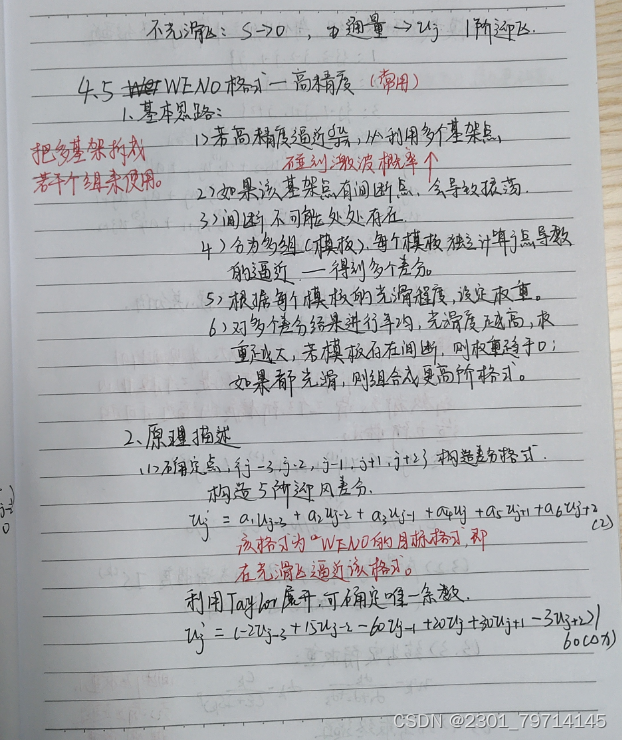 不光滑区: S→0, 通量→uj 1阶迎风.
4.5 WENO格式—高精度(常用)
1.基本思路:
1)若高精度逼近导数,必须利用多个基架点,
碰到激波概率↑
把多基架拆成
若干个组来使用。
2)如果该基架点有间断点,会导致振荡.
3)间断不可能处处存在.
4)分为多组(模板),每个模板独立计算j点导数
的逼近—得到多个差分。
5)根据每个模板的光滑程度,设定权重。
6)对多个差分结果进行平均,光滑度越高,权
重越大,若模板存在间断,则权重趋于0;
如果都光滑,则组合成更高阶格式。
2、原理描述
(1)确定点,{j-3,j-2,j-1,j+1,j+2}构造差分格式.
构造5阶迎风差分.
uj' = a1uj-3 + a2uj-2 + a3uj-1 + a4uj + a5uj+1 + a6uj+2
(2)
该格式为"WENO的目标格式,即
在光滑区逼近该格式。
利用Taylor展开,可确定唯一系数.
uj' = (-2uj-3 + 15uj-2 - 60uj-1 + 20uj + 30uj+1 - 3uj+2)/
60(△x)
CSDN @2301_79714145